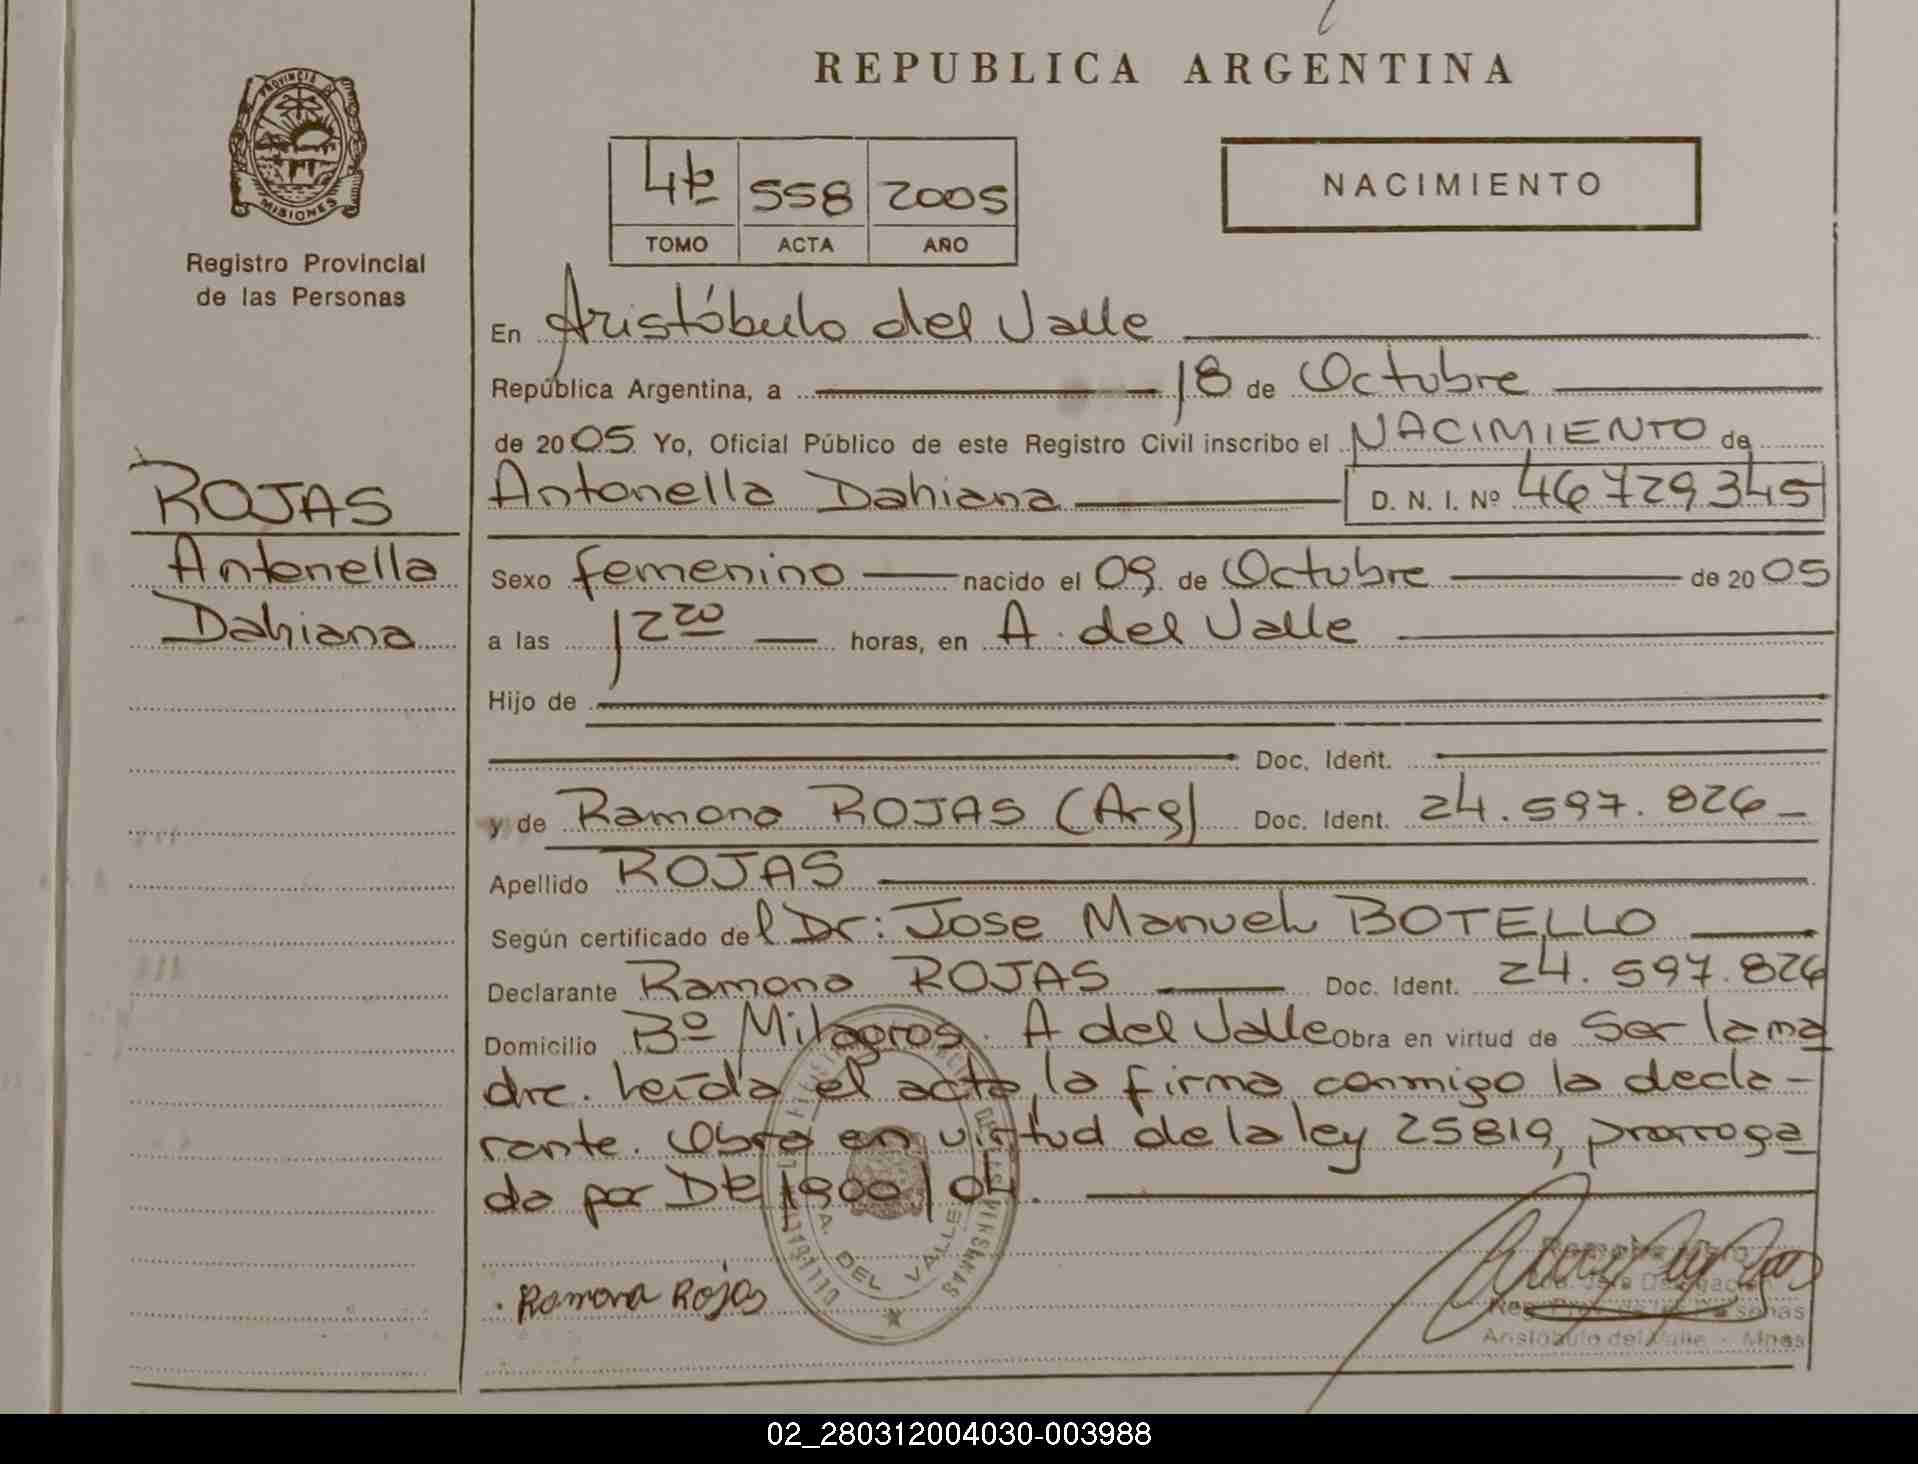 REPUBLICA ARGENTINA
PROVINCIA DE
MISIONES
Registro Provincial
de las Personas
4to 558 2005
TOMO ACTA AÑO
NACIMIENTO
ROJAS
Antonella
Dahiana
En Aristóbulo del Valle
República Argentina, a 18 de Octubre
de 2005 Yo, Oficial Público de este Registro Civil inscribo el NACIMIENTO de
Antonella Dahiana D. N. I. Nº 46729345
Sexo femenino nacido el 09 de Octubre de 2005
a las 12 20 horas, en A. del Valle
Hijo de
Doc. Ident.
y de Ramona ROJAS (Arg) Doc. Ident. 24.597.826
Apellido ROJAS
Según certificado del Dr: Jose Manuel BOTELLO
Declarante Ramona ROJAS Doc. Ident. 24.597.826
Domicilio Bº Milagros. A del Valle Obra en virtud de Ser la ma
dre. Leída el acta, la firma conmigo la decla-
rante. Obra en virtud de la ley 25819, prorroga
da por Dto 1900/04.
A. DEL VALLE
Ramona Rojas
Jefe Delegación
Reg. Prov. de las Personas
Aristóbulo del Valle - Mnes
02_280312004030-003988